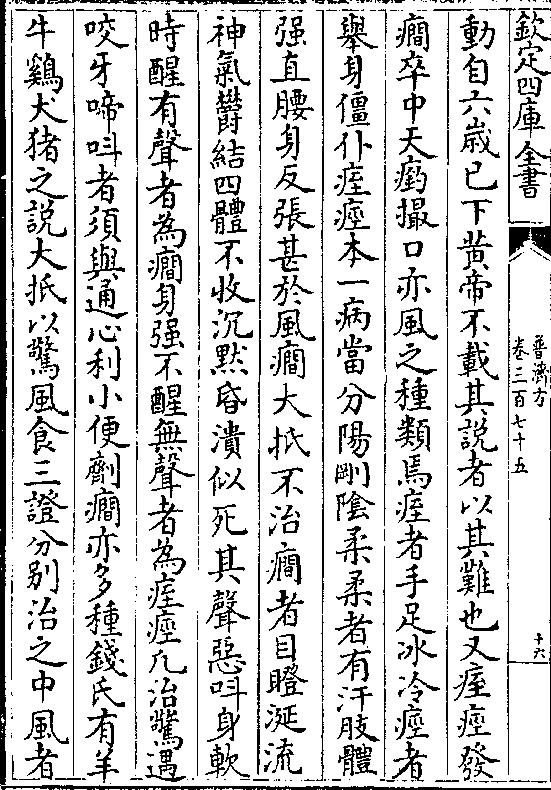 欽定四庫全書
普濟方
卷三百七十五
十六
動自六歲已下黄帝不載其說者以其難也又痓痙發
癎卒中天瘹撮口亦風之種類焉痓者手足氷冷痙者
舉身僵仆痓痙本一病當分陽剛隂柔柔者有汗肢體
强直腰身反張甚於風癎大抵不治癎者目瞪涎流
神氣欝結四體不收沉黙昏潰似死其聲惡呌身軟
時醒有聲者為癎身强不醒無聲者為痓痙凡治驚遇
咬牙啼呌者須與通心利小便劑癎亦多種錢氏有羊
牛鷄犬猪之說大抵以驚風食三證分别治之中風者